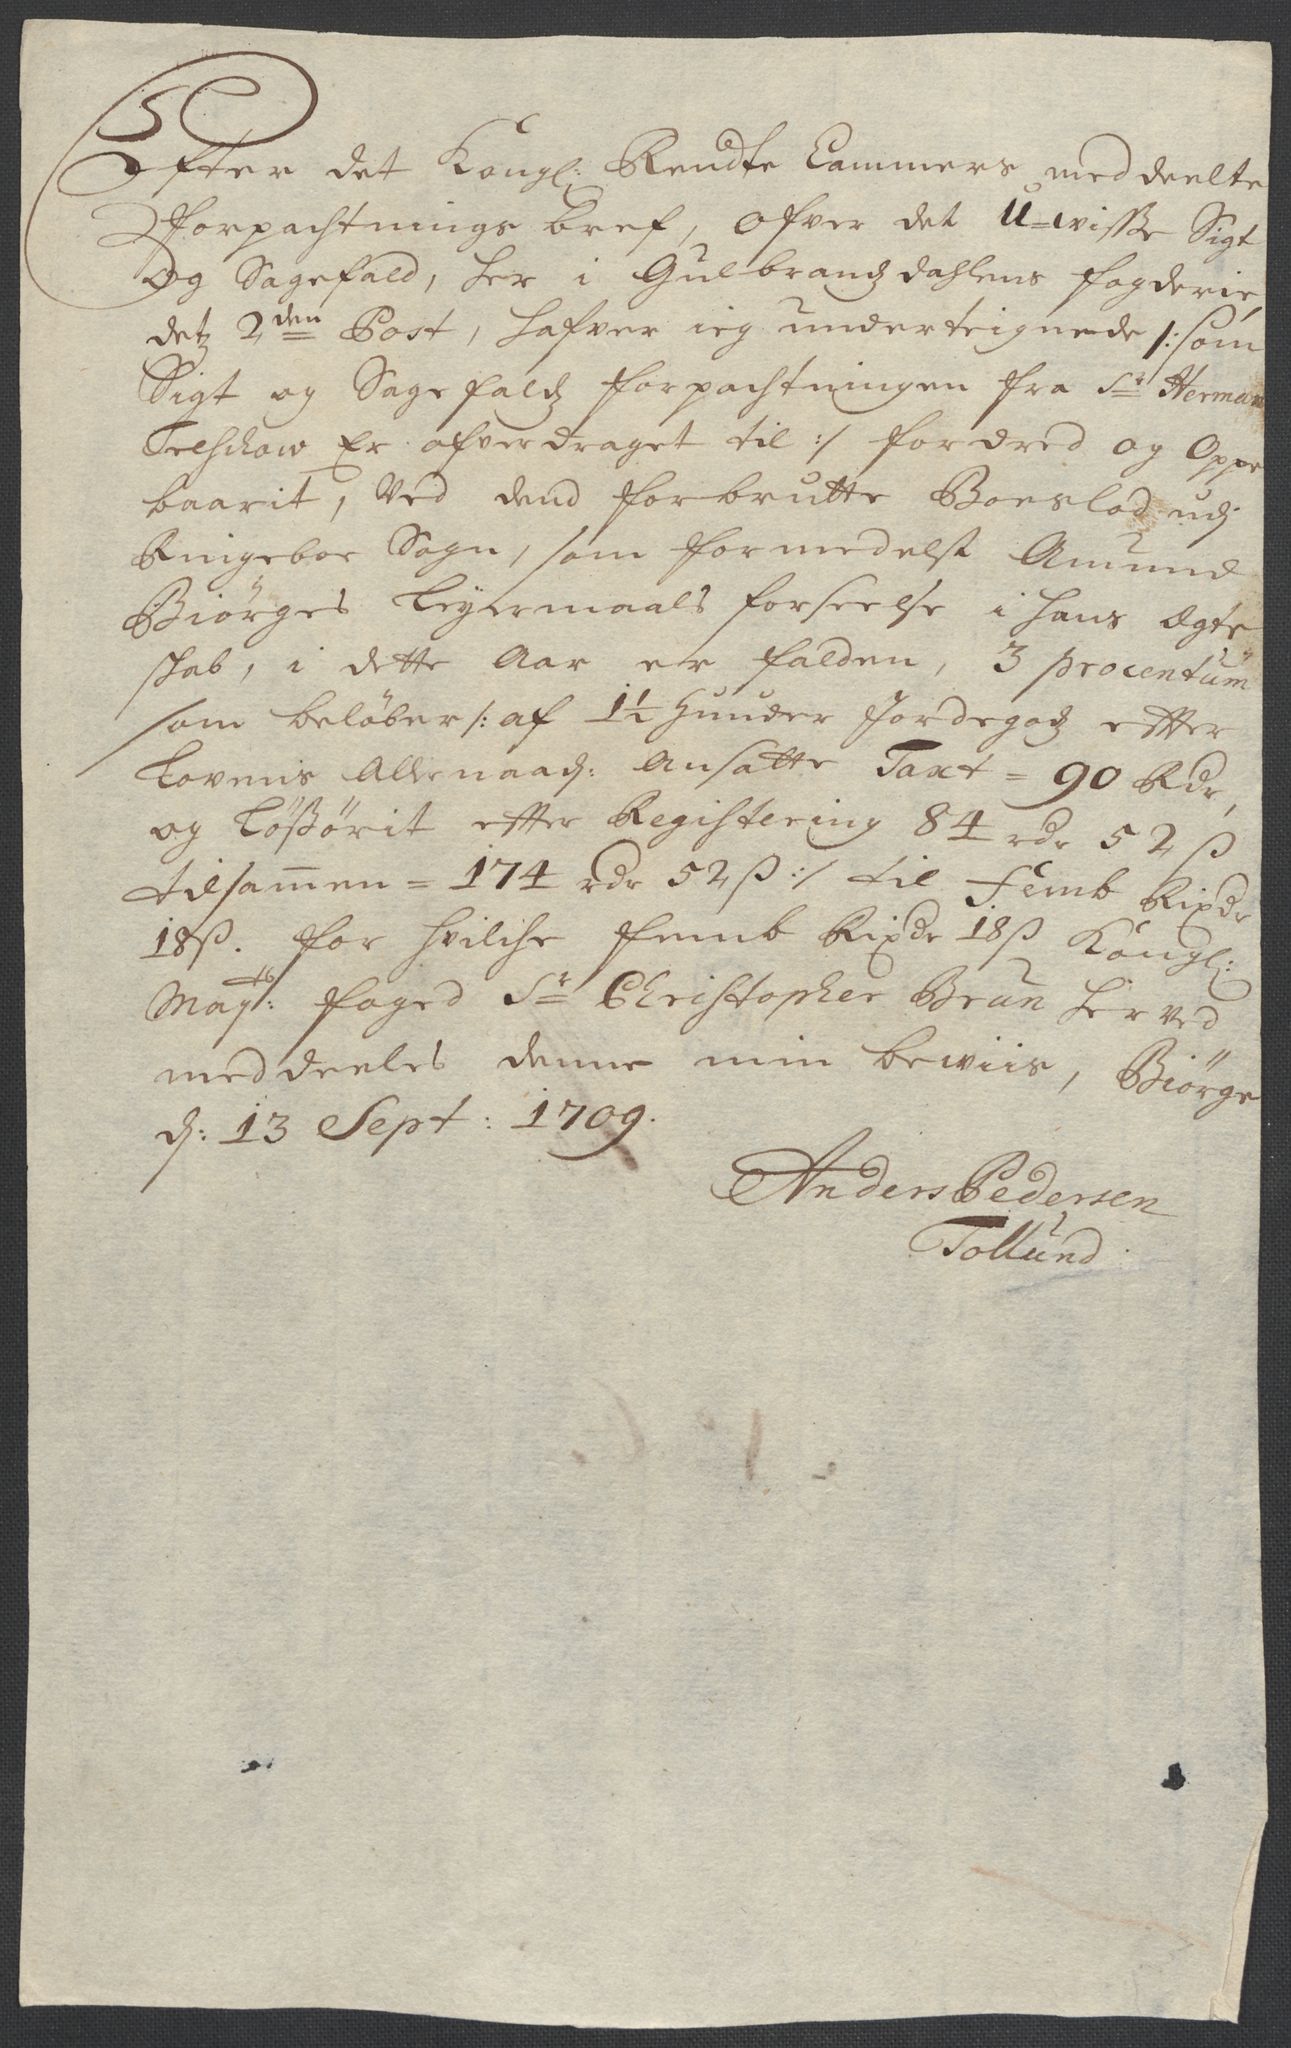 Efter det Kongl: Rendte Cammers meddeelte
Forpachtnings bref, ofver det U-wisse Sigt
Og Sagefald, her i Gulbrandz dahlens fogderie,
detz 2den Post, hafver ieg underteignede /: som
Sigt og Sagefaldz forpachtningen fra Sr Herman
Telschow Er ofverdraget til :/ fordred og Oppe
baarit, Ved dend forbrutte Boeslod udj
Ringeboe Sogn, som formedelst Amund
Biörges Leyermaals forseelse i hans Ægte
skab, i dette Aar er falden, 3 procentum
som beløber /: af 1½ Hunder Jordegodz efter
Lovens Allernaad: Ansatte Taxt = 90 Rdr,
og Lößörit efter Registering 84 rdr 52 ß
tilsamen = 174 rdr 52 ß :/ til Femb Rixdr
18 ß. for hvilche femb Rixdr 18 ß Kongl:
Mayts: foged Sr Christopher Brun her ved
meddeeles denne min bewiis, Biörge
d: 13 Sept: 1709.
Anders Pedersen
Tollund